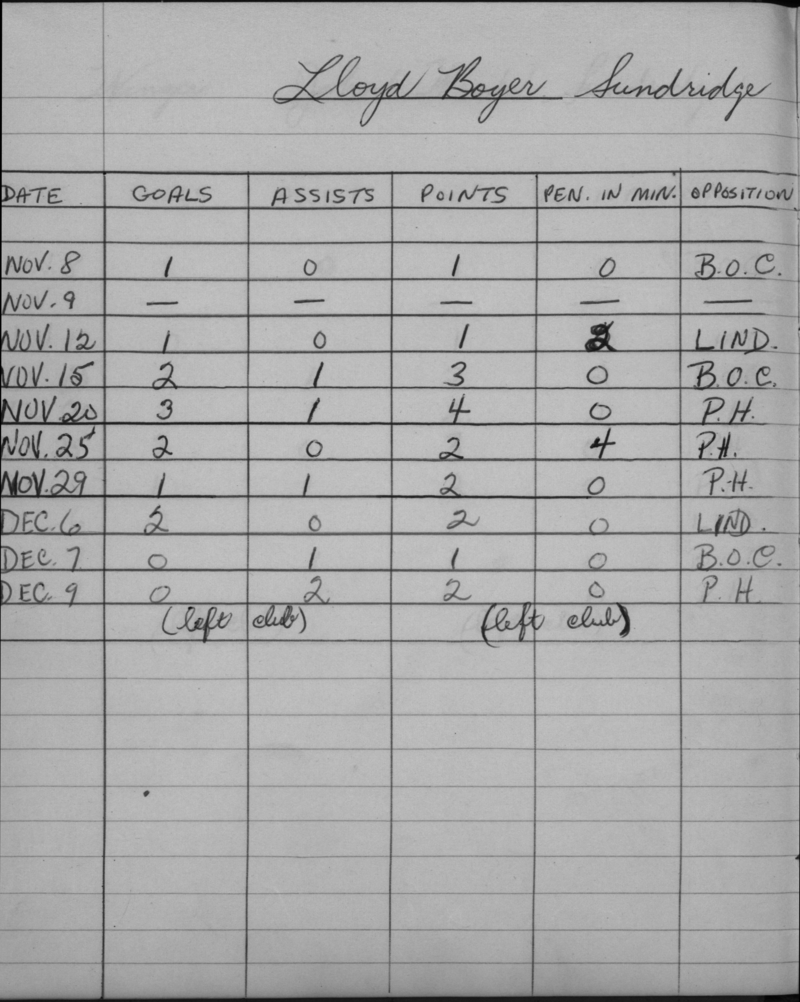 Lloyd Boyer Sundridge
DATE GOALS ASSISTS POINTS PEN. IN MIN. OPPOSITION
NOV. 8 1 0 1 0 B.O.C.
NOV. 9 — — — — —
NOV. 12 1 0 1 2 LIND.
NOV. 15 2 1 3 0 B.O.C.
NOV 20 3 1 4 0 P.H.
NOV. 25 2 0 2 4 P.H.
NOV. 29 1 1 2 0 P.H.
DEC. 6 2 0 2 0 LIND.
DEC. 7 0 1 1 0 B.O.C.
DEC. 9 0 2 2 0 P. H.
(left club) (left club)